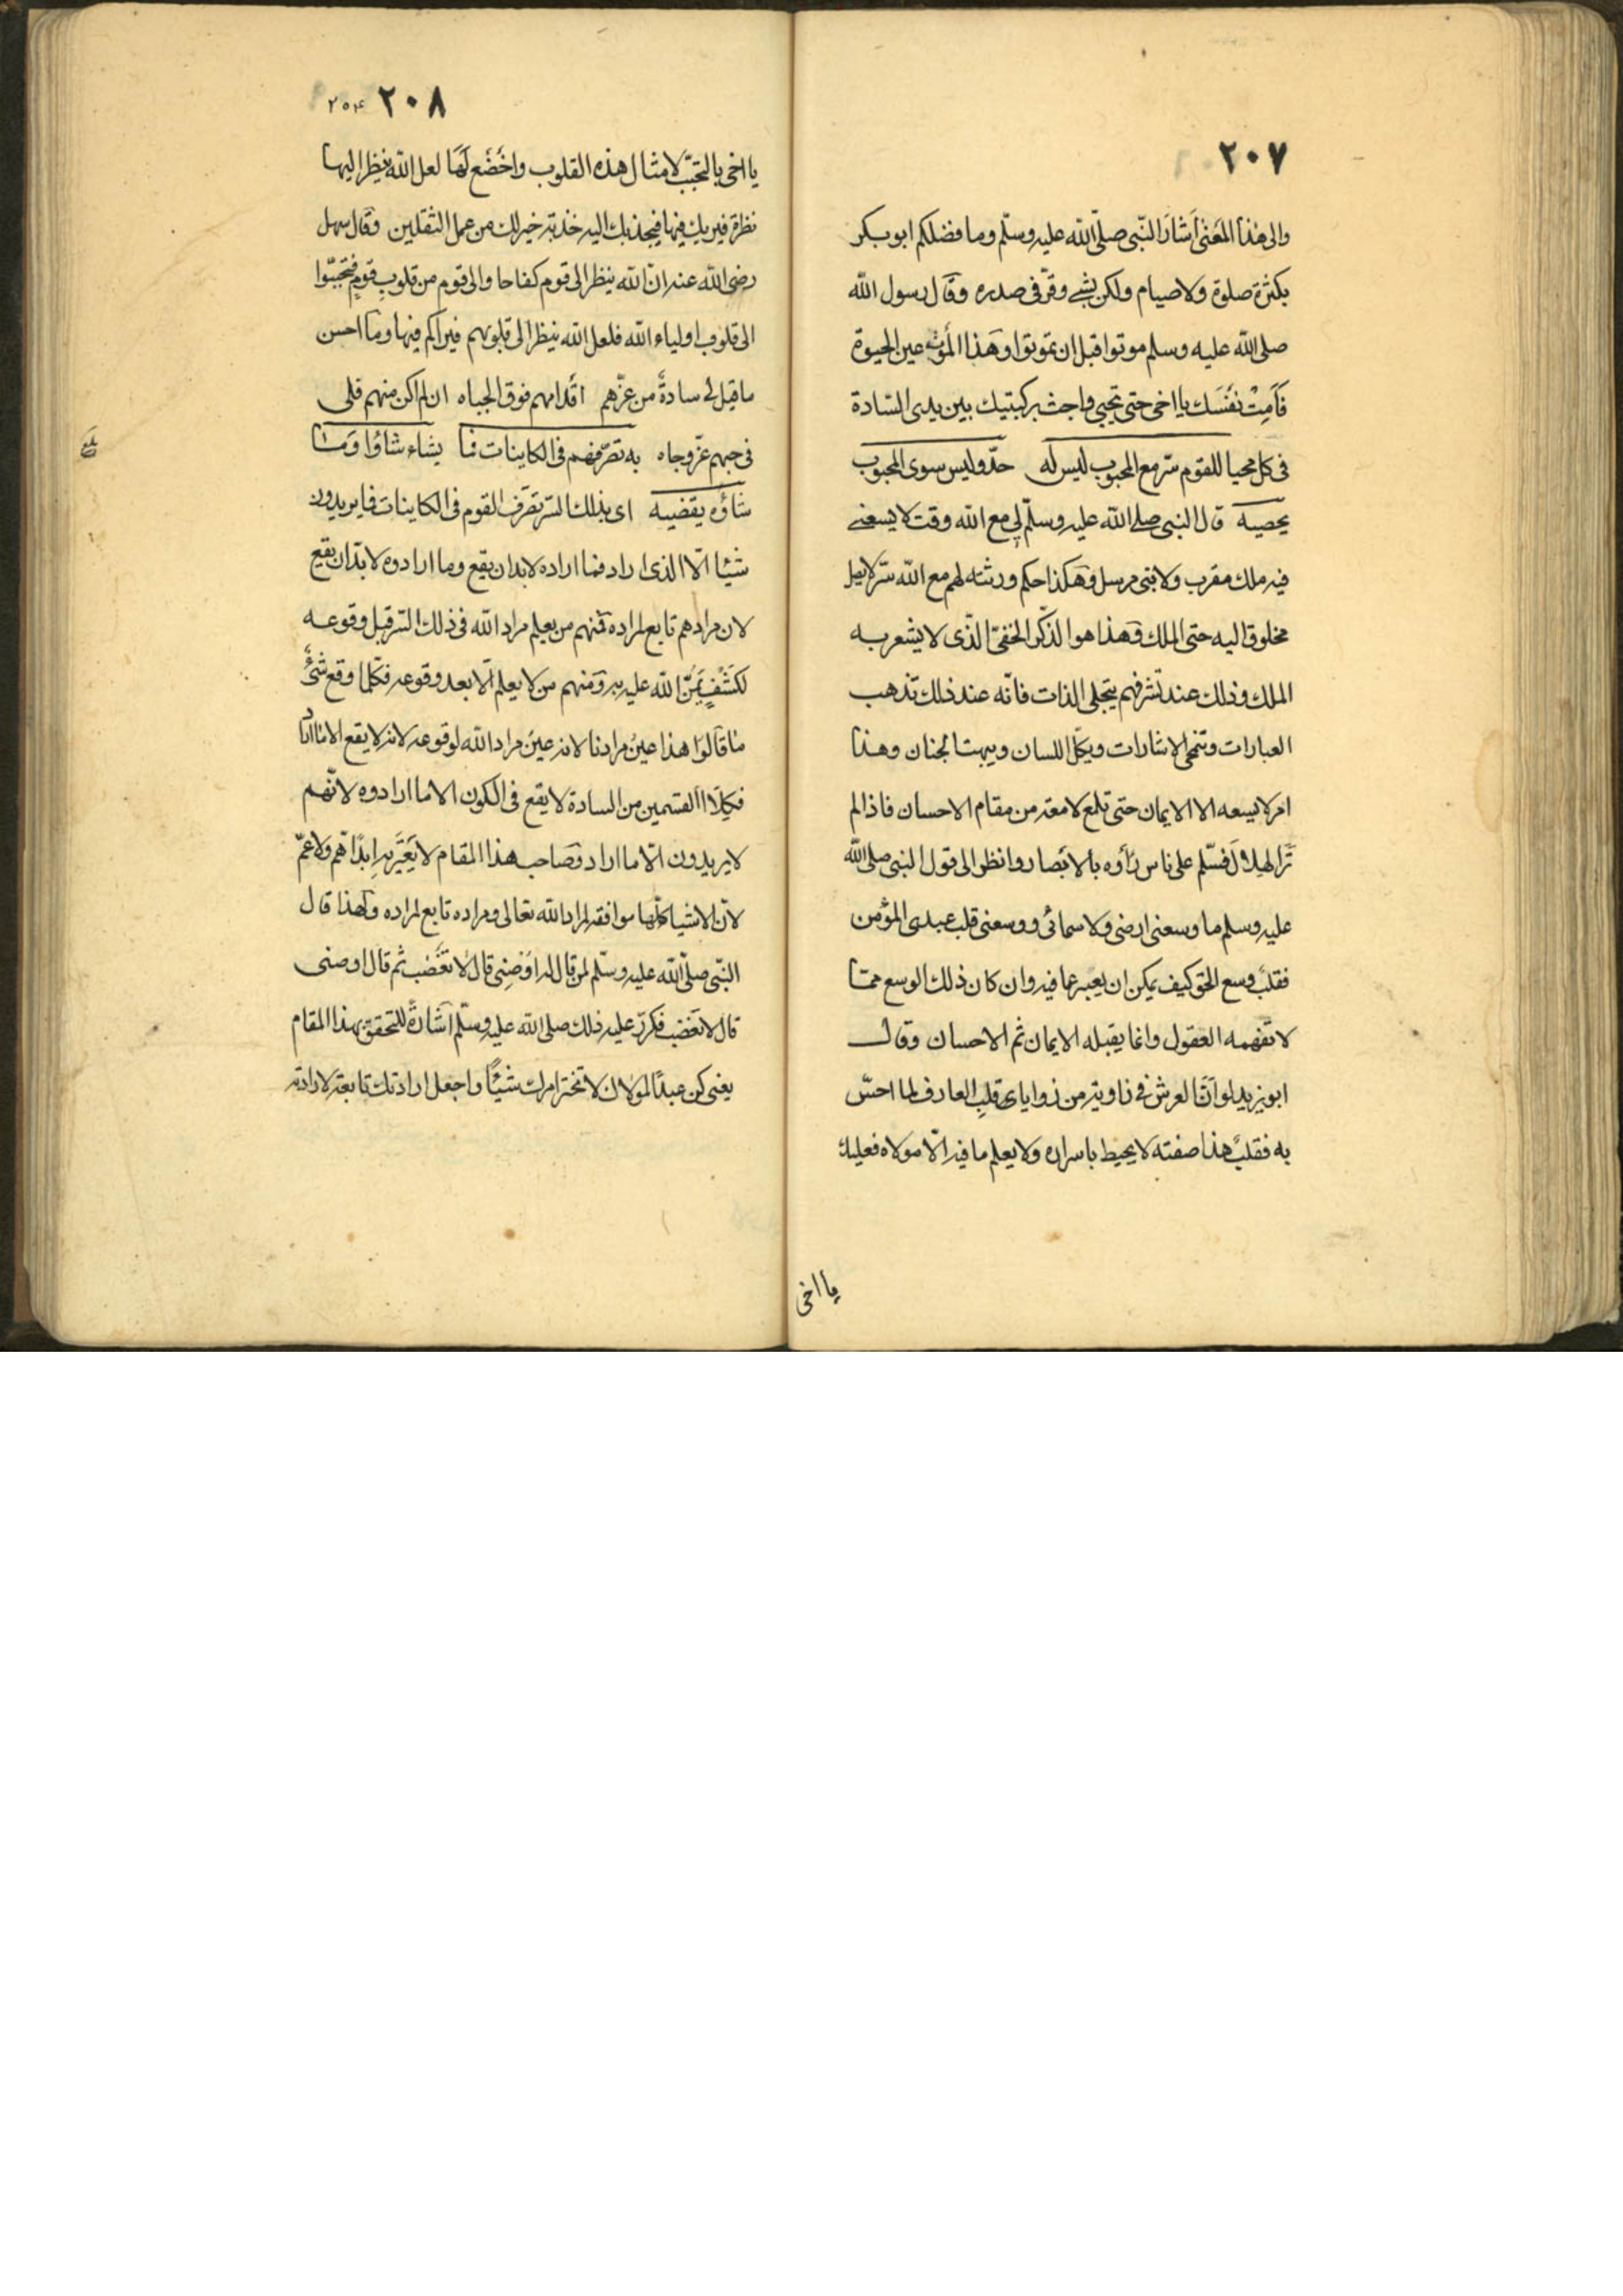 ٢٠٧
والى هذا المعنى اَشَارَ النّبى صلّى الله عليه وسلّم وما فضلكم ابو بكر
بكثرة صلوة ولا صيام ولكن بشئ وقّر فى صدره وقال رسول الله
صلى الله عليه وسلم موتوا قبل ان تموتوا وهذا الموت عين الحيوة
فَاَمِتْ نفْسَك يا اخى حتى تحيى واجث بركبتيك بين يدى السّادة
فى كل محيا للقوم سّر مع المحبوب ليس له حدّ وليس سوى المحبوب
يحصيه قال النبى صلى الله عليه وسلّم لى مع الله وقت لا يسعنى
فيه ملك مقرب ولا نبى مرسل وهكذا حكم ورثته لهم مع الله سرّ لا يصل
مخلوق اليه حتى الملك وهذا هو الذّكر الخفىّ الذّى لا يشعر به
الملك وذلك عند تشرفهم بتجلى الذات فانّه عند ذلك تذهب
العبارات وتنمحى الاشارات ويكلّ اللسان ويبهت الجنان وهذا
امر لا يسعه الا الايمان حتى تلمع لامعة من مقام الاحسان فاذا لم
تَرَ الهلال فَسّلم على ناس رأوه بالابصار وانظر الى قول النبى صلى الله
عليه وسلم ما وسعنى ارضى ولا سمائى ووسعنى قلب عبدى المؤمن
فقلبٌ وسع الحق كيف يمكن ان يعبر عما فيه وان كان ذلك الوسع ممّا
لا تفهمه العقول وانما يقبله الايمان ثم الاحسان وقال
ابو يزيد لو اَنّ العرش فى زاوية من زوايا قلبِ العارف لما احسّ
به فقلبٌ هذا صفته لا يحيط باسراره ولا يعلم ما فيه الّا مولاه فعليك
يا اخى
٢٠٨ ٢٥٤
يا اخى بالتحبّب لامثال هذه القلوب واخْضَع لَهَا لعل الله ينظر اليها
نظرة فيريك فيها فيجذبك اليه جذبة خير لك من عمل الثقلين وقال سهل
رضى الله عنه انّ الله ينظر الى قوم كفاحا والى قوم من قلوبِ قومٍ فتحبّبوا
الى قلوب اولياء الله فلعل الله ينظر الى قلوبهم فيراكم فيها وما احسن
ما قيل لى سادةٌ من عزّهم اقدامهم فوق الجباه ان لم اكن منهم فلى
فى حبهم عزّ وجاه به تصرّفهم فى الكاينات فما يشاء شاؤا وَمَا
شاؤه يقضيه اى بذلك السّر تصَرّف القوم فى الكاينات فما يريدون
شيئا الّا الذى اراد فما اراده لا بد ان يقع وما ارادوه لا بدّ ان يقع
لان مرادهم تابع لمراده فمنهم من يعلم مراد الله فى ذلك السّر قبل وقوعه
لكشفٍ يَمُنّ الله عليه به ومنهم من لا يعلم الّا بعد وقوعه فكلّما وقع شئٌ
ما قَالوا هذا عينُ مرادنا لانه عينُ مراد الله لوقوعه لانه لا يقع الا ما اراد
فكلَا القسمين من السادة لا يقع فى الكون الا ما ارادوه لانّهم
لا يريدون الّا ما اراد وصَاحب هذا المقام لا يَعْتَريه ابدًا هّم ولا غمّ
لانّ الاشيا كلّها موافقة لمراد الله تعالى ومراده تابع لمراده ولهذا قال
النّبى صلّى الله عليه وسلّم لمن قال له اوصِنِى قال لَا تغْضَب ثم قال اوصنى
قال لا تغضب فكرّر عليه ذلك صلى الله عليه وسلّم اشارةً للتحقق بهذا المقام
يعنى كن عبدًا لمولاك لا تختر امرك شيئًا واجعل ارادتك تابعة لارادته
بلغ